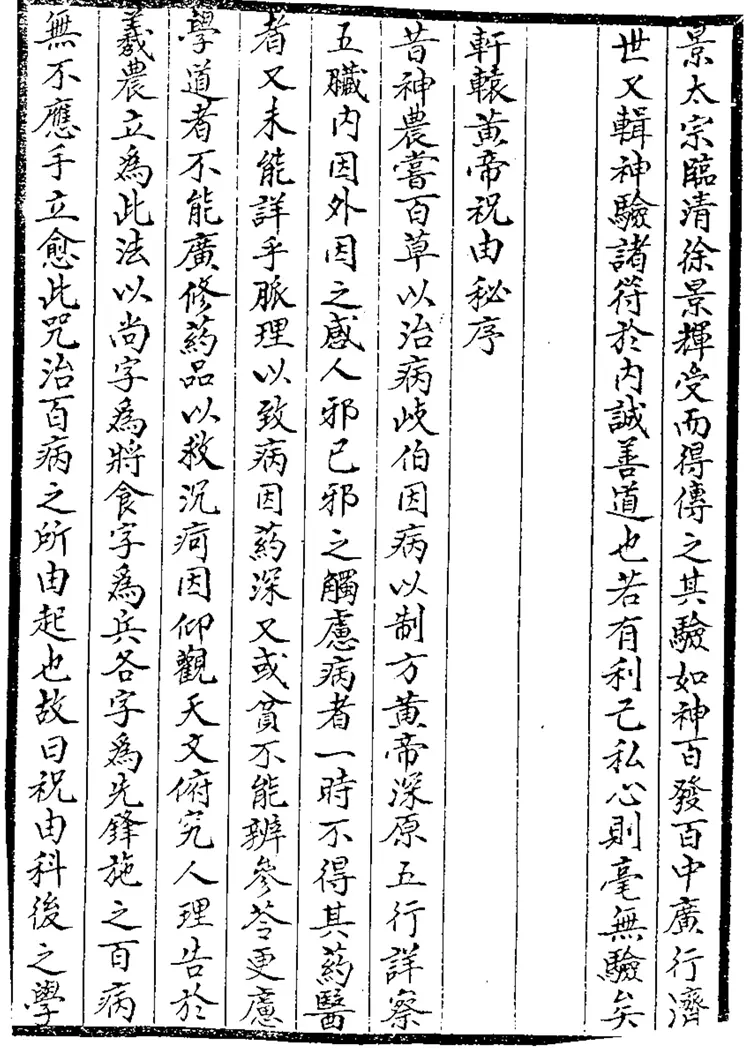 景太宗臨清徐景輝受而得傳之其驗如神百發百中廣行濟
世又輯神驗諸符於內誠善道也若有利己私心則毫無驗矣
軒轅黃帝祝由秘序
昔神農嘗百草以治病歧伯因病以制方黃帝深原五行詳察
五臟內因外因之感人邪已邪之觸慮病者一時不得其葯醫
者又未能詳乎脈理以致病因葯深又或貧不能辨參苓更慮
學道者不能廣修葯品以救沉疴因仰觀天文俯究人理告於
羲農立為此法以尚字為將食字為兵各字為先鋒施之百病
無不應手立愈此咒治百病之所由起也故曰祝由科後之學